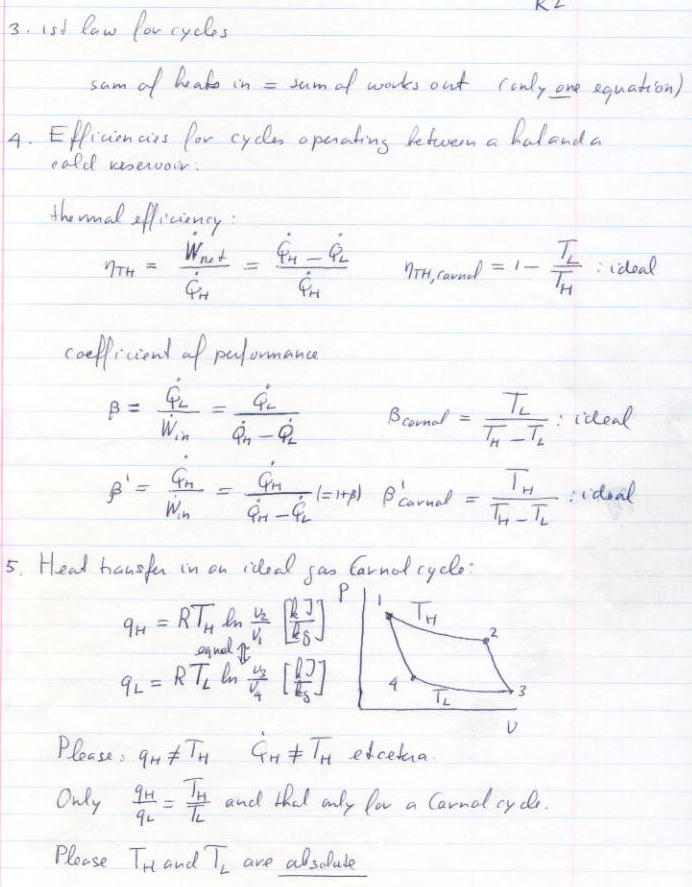 K2
3. 1st law for cycles
sum of heats in = sum of works out (only one equation)
4. Efficiencies for cycles operating between a hot and a
cold reservoir:
thermal efficiency:
η_TH = Ẇnet / Q̇_H = (Q̇_H − Q̇_L) / Q̇_H   η_TH,carnot = 1 − T_L / T_H : ideal
coefficient of performance
β = Q̇_L / Ẇin = Q̇_L / (Q̇_H − Q̇_L)   β carnot = T_L / (T_H − T_L) : ideal
β' = Q̇_H / Ẇin = Q̇_H / (Q̇_H − Q̇_L) (=1+β)   β' carnot = T_H / (T_H − T_L) : ideal
5. Heat transfer in an ideal gas Carnot cycle:
q_H = R T_H ln v₂/v₁ [kJ/kg]
equal ⇕
q_L = R T_L ln v₃/v₄ [kJ/kg]
P
1 T_H 2
4 T_L 3
v
Please: q_H ≠ T_H   Q̇_H ≠ T_H etcetera.
Only q_H/q_L = T_H/T_L and that only for a Carnot cycle.
Please T_H and T_L are absolute